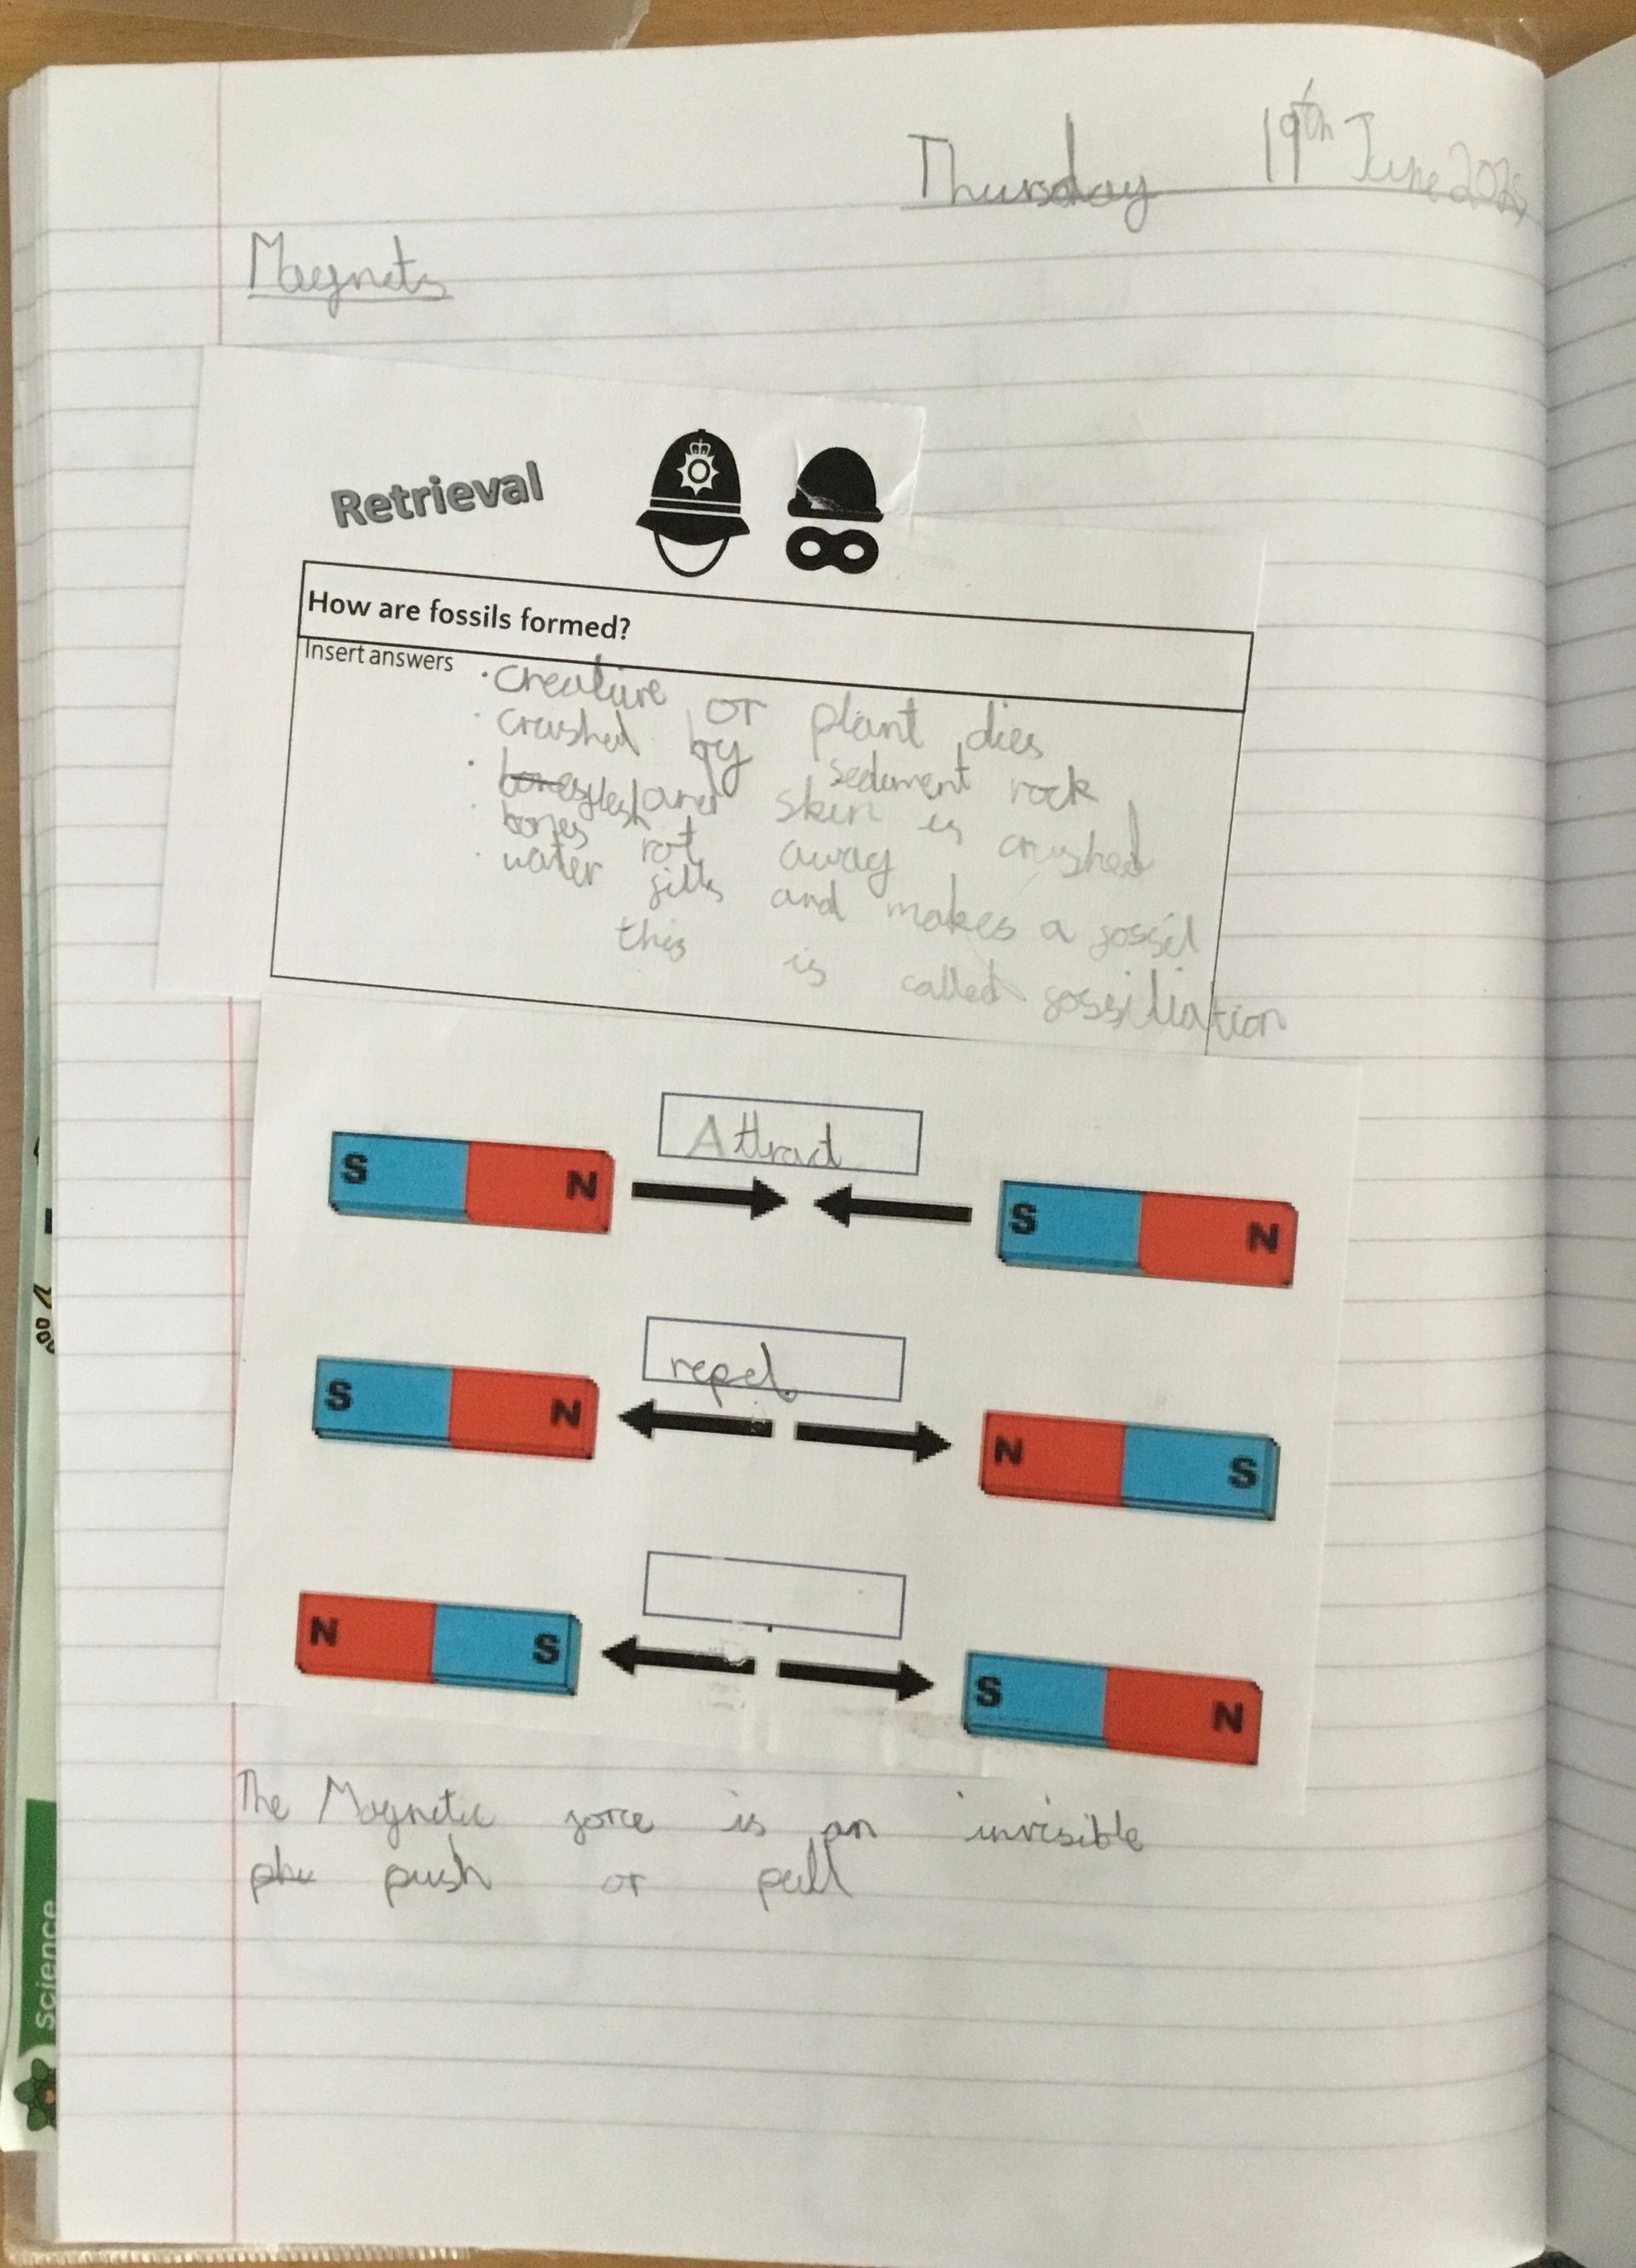 Thursday 19th June 2025
Magnets
Retrieval
How are fossils formed?
Insert answers
· creature or plant dies
· crushed by sediment rock
· bones flesh and skin is crushed
· bones rot away
· water fills and makes a fossil
this is called fossiliation
Attract
S N S N
repel
S N N S
N S S N
The Magnetic force is an invisible
phu push or pull
Science